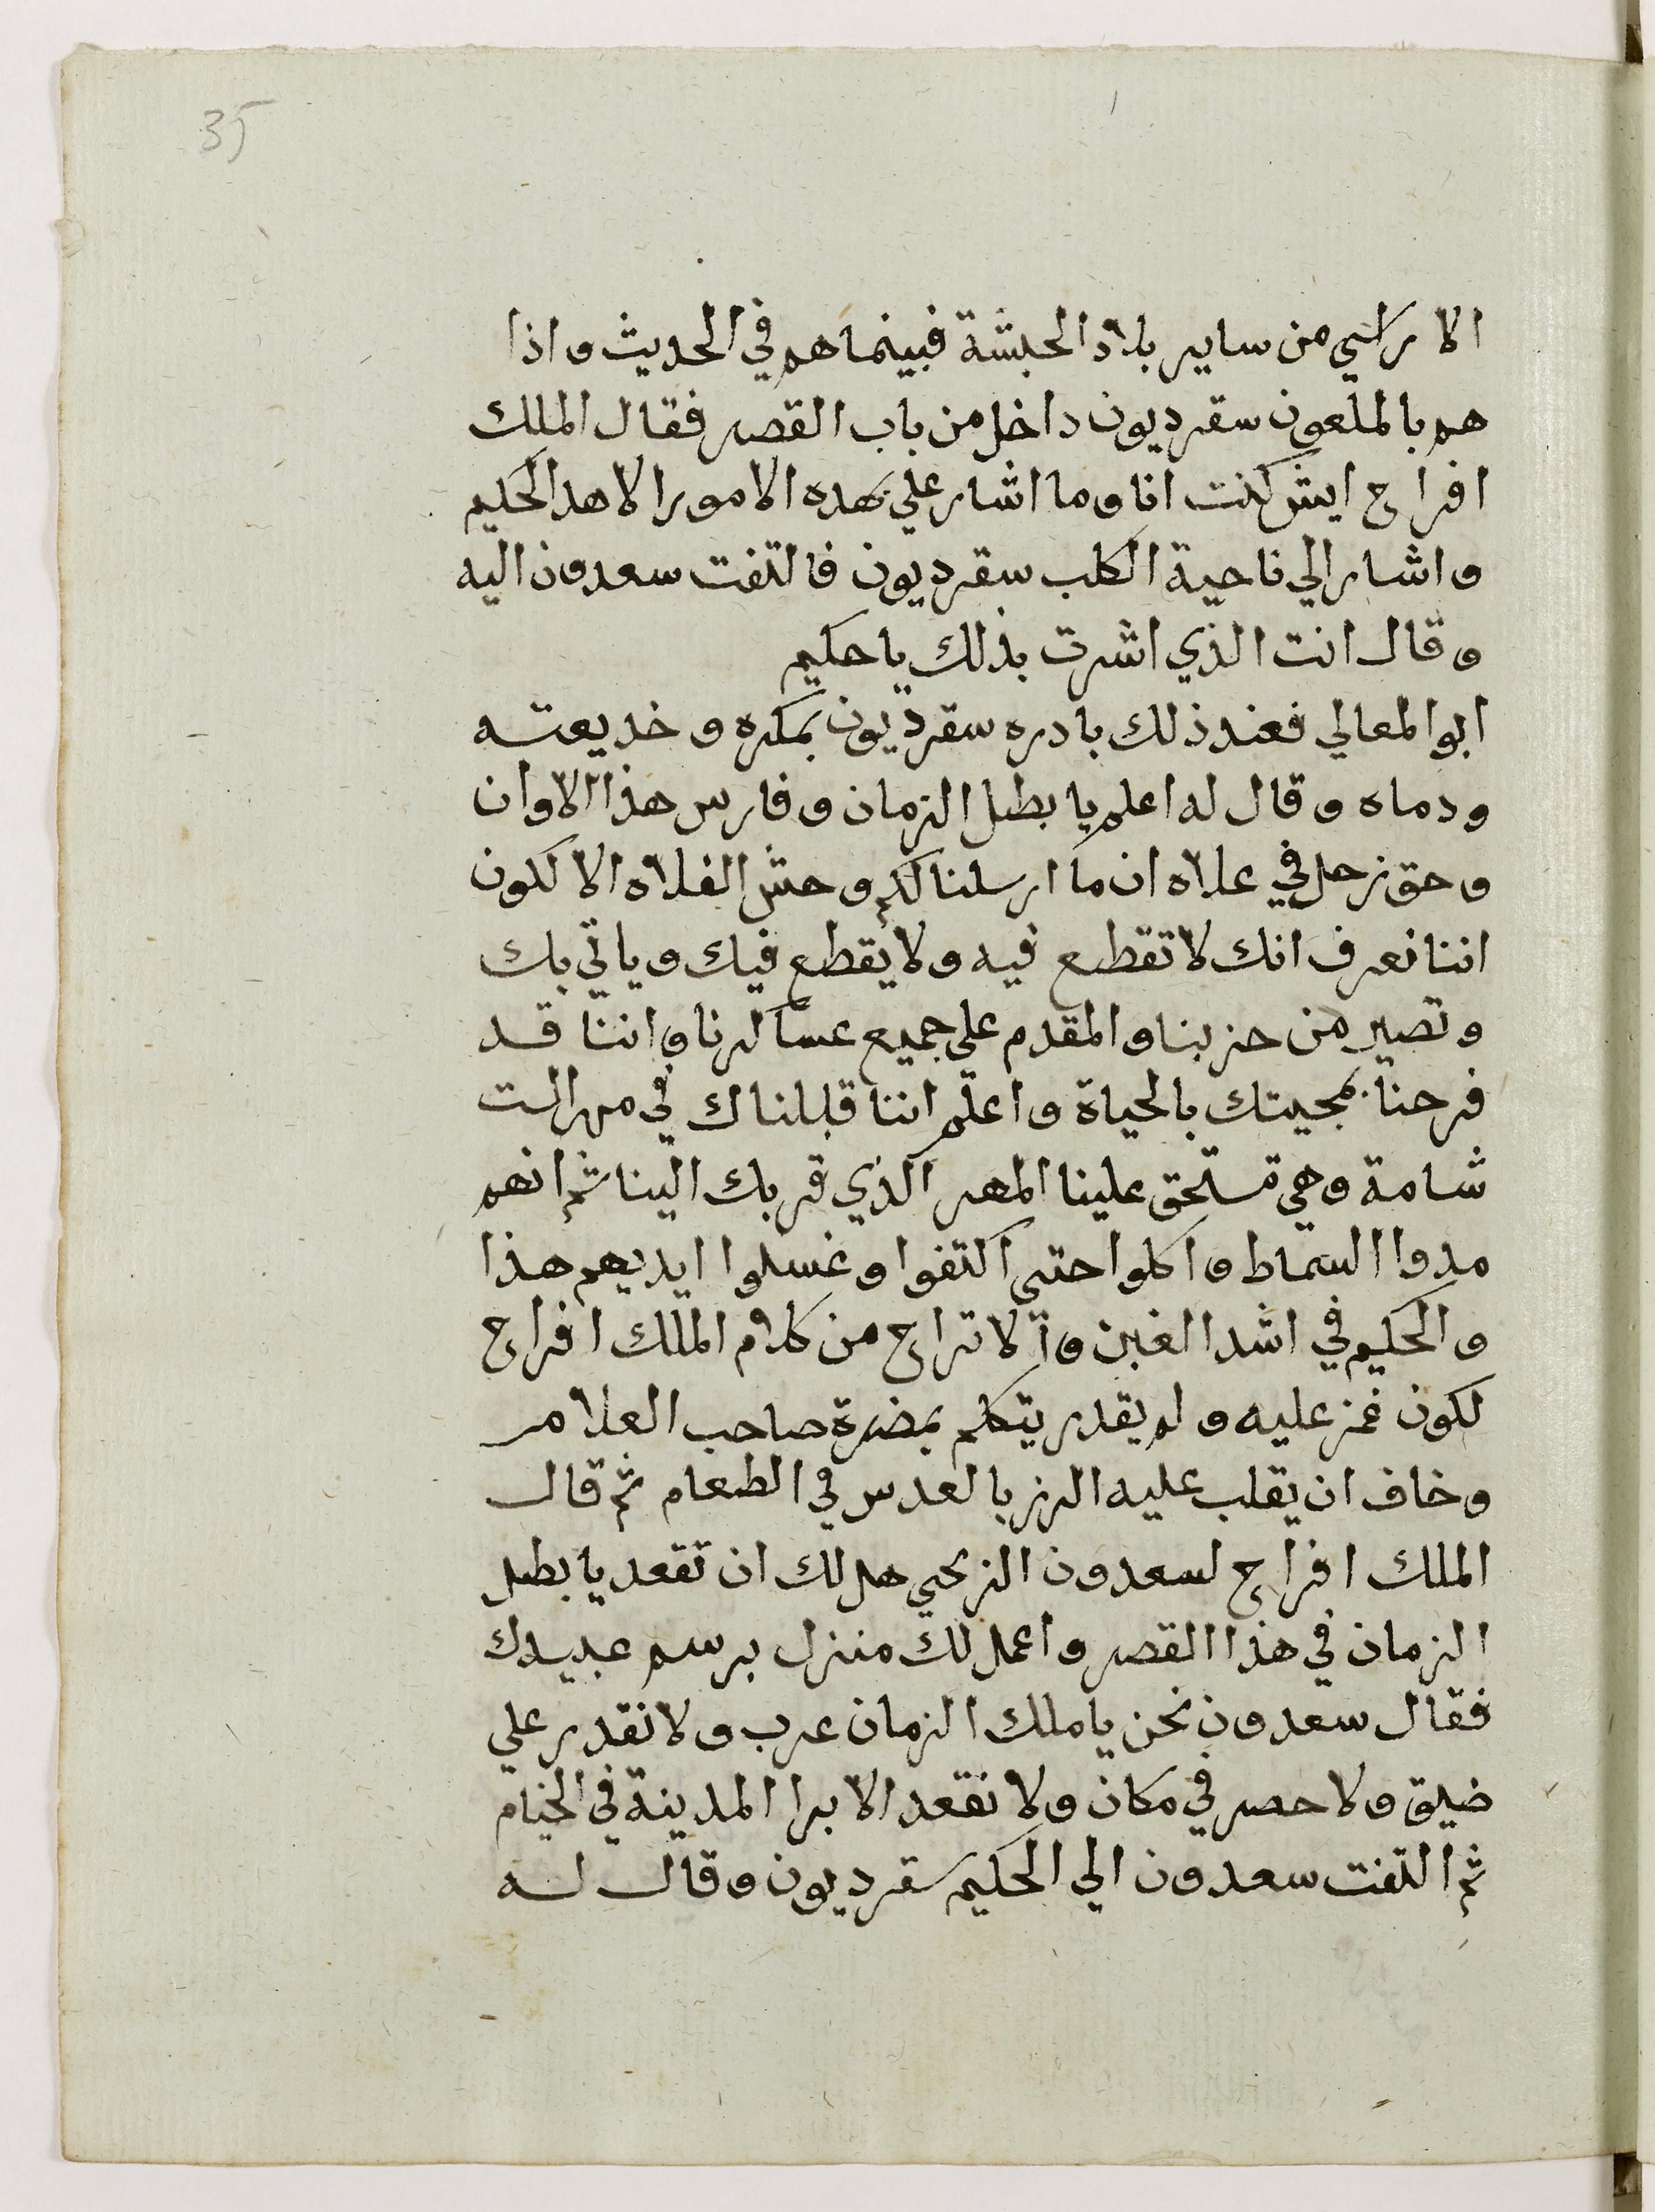 35
الاراضي من ساير بلاد الحبشة فبينما هم في الحديث واذا
هم بالملعون سقرديون داخل من باب القصر فقال الملك
افراح ايش كنت انا وما اشار علي بهده الامور الا هدا الحكيم
واشار الي ناحية الكلب سقرديون فالتفت سعدون اليه
وقال انت الذي اشرت بذلك يا حكيم
ابو المعالي فعند ذلك بادره سقرديون بمكره وخديعته
ودماه وقال له اعلم يا بطل الزمان وفارس هذا الاوان
وحق زحل في علاه ان ما ارسلنا لكم وحش الفلاه الا لكون
اننا نعرف انك لا تقطع فيه ولا يقطع فيك وياتي بك
وتصير من حزبنا والمقدم علي جميع عساكرنا واننا قد
فرحنا بمجيتك بالحياة واعلم اننا قبلناك في مهر الست
شامة وهي تستحق علينا المهر الذي قربك الينا ثم انهم
مدوا السماط واكلوا حتي اكتفوا وغسلوا ايديهم هذا
والحكيم في اشد الغبن و لا تراح من كلام الملك افراح
لكون غمز عليه ولم يقدر يتكلم بحضرة صاحب العلامر
وخاف ان يقلب عليه الرز بالعدس في الطعام ثم قال
الملك افراح لسعدون الزنجي هل لك ان تقعد يا بطل
الزمان في هذا القصر واعمل لك منزل برسم عبيدك
فقال سعدون نحن يا ملك الزمان عرب ولا نقدر علي
ضيق ولا حصر في مكان ولا نقعد الا برا المدينة في الخيام
ثم التفت سعدون الي الحكيم سقرديون وقال له